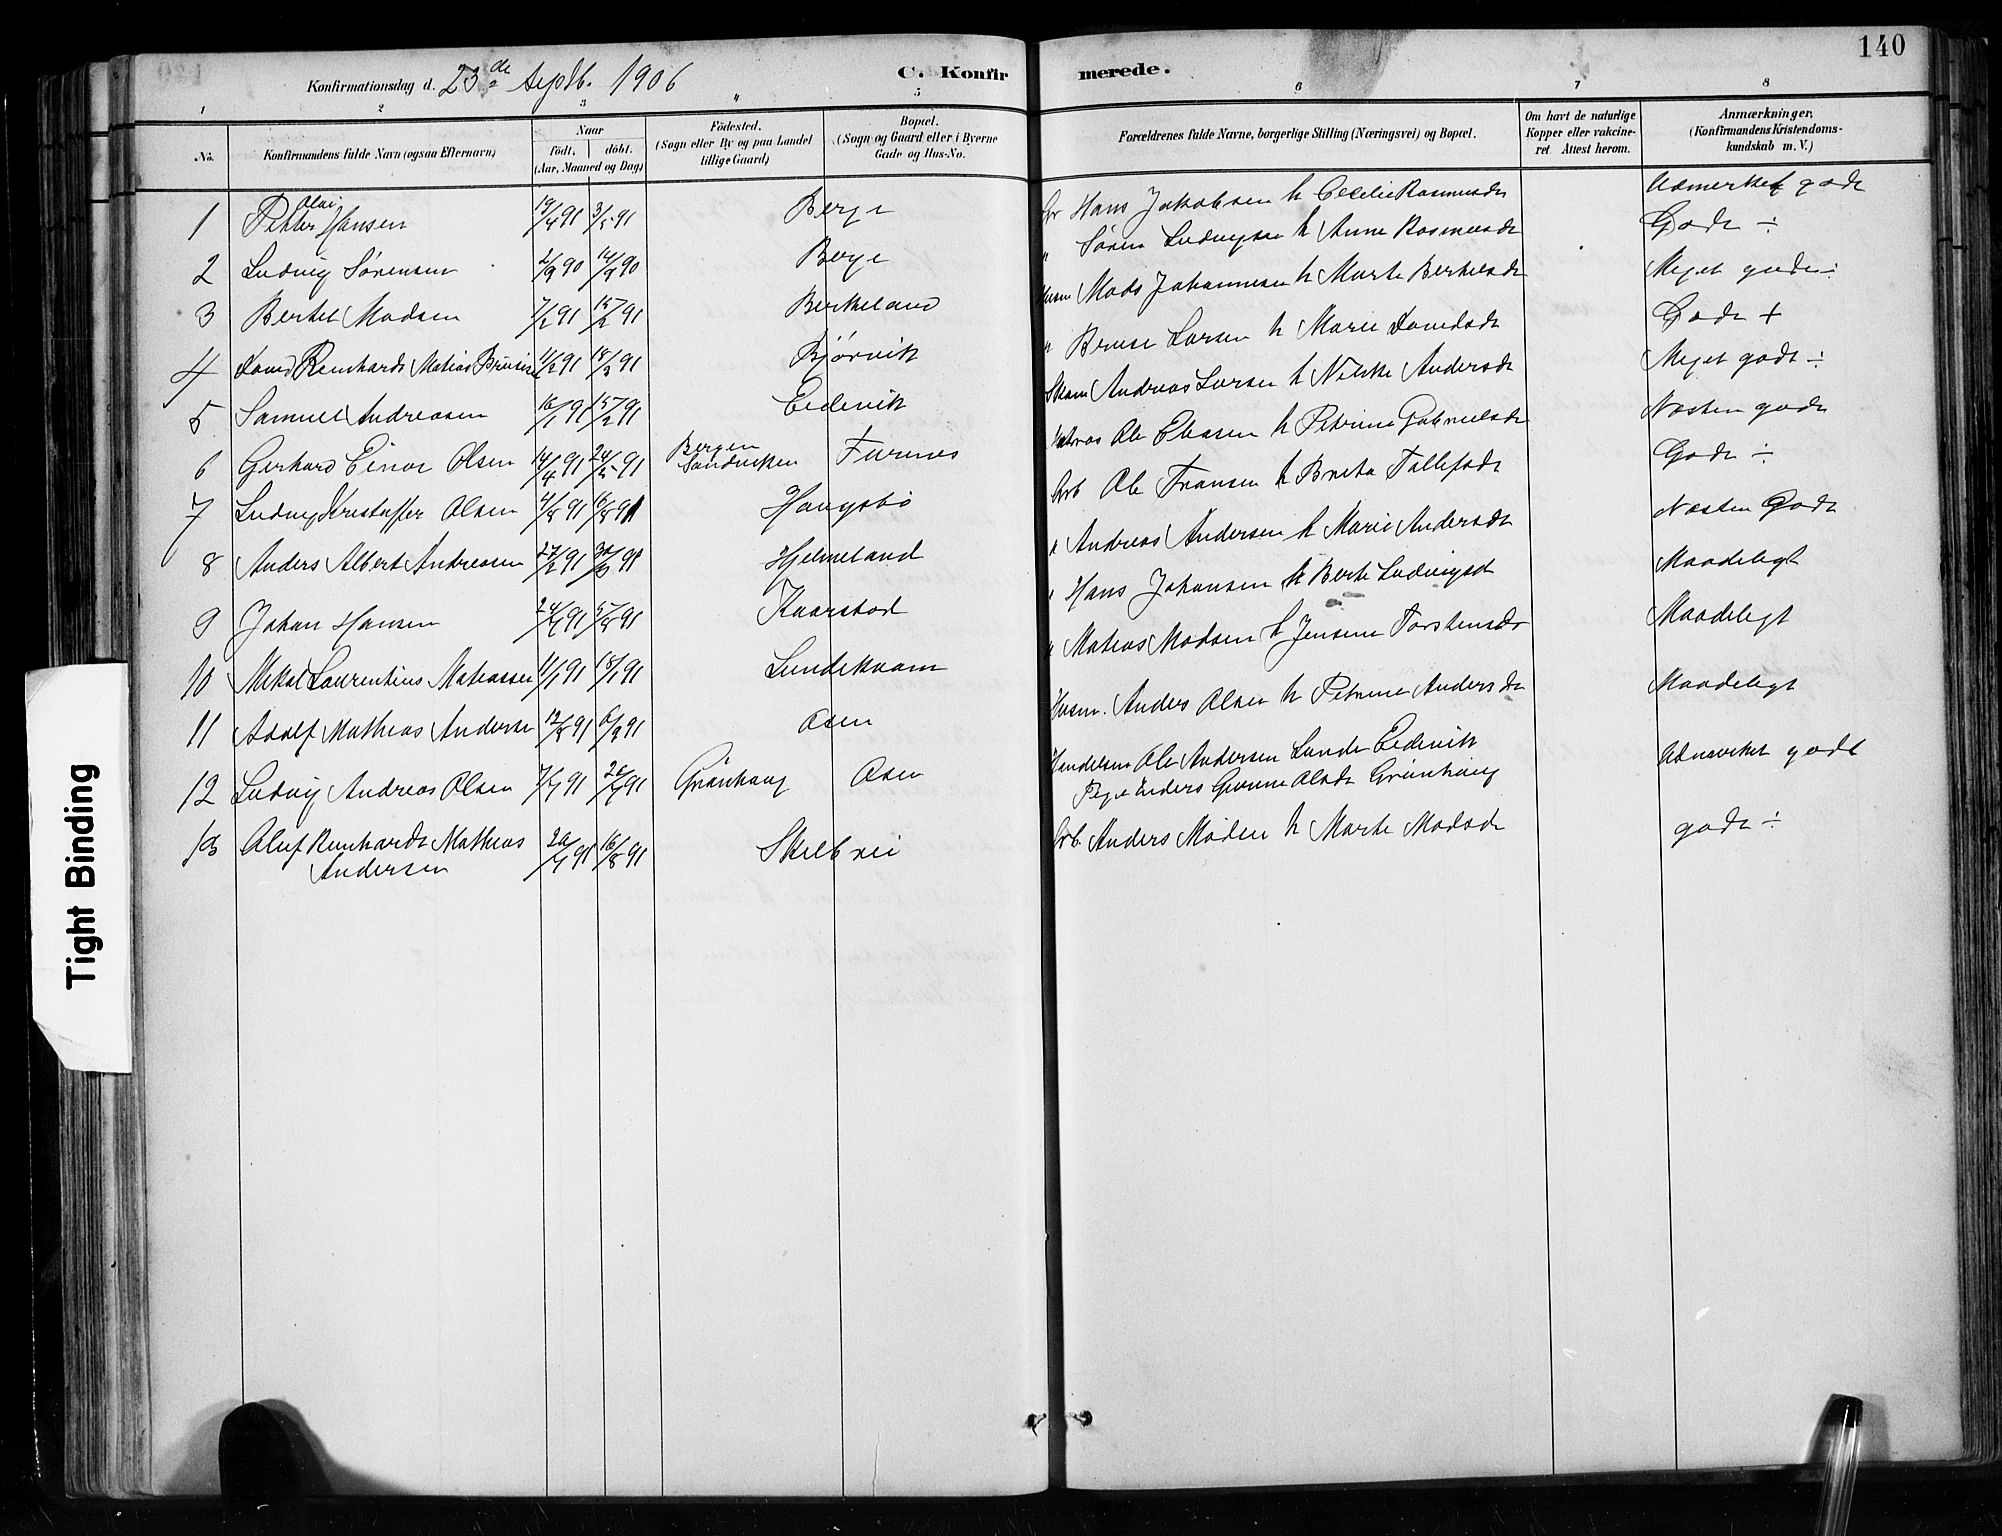 140
C. Konfirmerede.
Konfirmationsdag d. 23de Septb. 1906
1 2 3 " 5 6 7 8
No. Konfirmandens fulde Navn (ogsaa Efternavn)
Naar
født. døbt.
(Aar, Maaned og Dag)
Fødested.
(Sogn eller By og paa Landet tillige Gaard)
Bopæl.
(Sogn og Gaard eller i Byerne Gade og Hus-No.
Forældrenes fulde Navne, borgerlige Stilling (Næringsvei) og Bopæl.
Om havt de naturlige Kopper eller vakcineret. Attest herom.
Anmærkninger. (Konfirmandens Kristendomskundskab m. V.)
1 Petter Olai Hansen 19/4 91 3/5 91 Berge Hans Jakobsen h Cecilie Rasmusdt Udmerket godt
2 Ludvig Sørensen 2/9 90 14/9 90 Berge " Søren Ludvigsen h Anne Rasmusdt Godt ÷
3 Bertel Madsen 7/2 91 15/2 91 Berkeland Husm Mads Johannesen h Marte Bertelsdt Meget godt ÷
4 Reinhardt Matias 91 91 Bjørvik " Larsen h Marie Godt +
5 Samuel Andreasen 16/1 91 15/2 91 Eidevik Andreas Larsen h Andersdt Meget godt ÷
6 Gerhard Einar Olsen 14/4 91 24/5 91 Bergen Sandviken Furenes Ole Eliasen h Petrine Gabrielsdt Næsten godt
7 Ludvig Kristoffer Olsen 4/8 91 16/8 91 Haugsbø Arb Ole Fransen h Tollefsdt Godt ÷
8 Anders Albert Andreasen 27/2 91 91 Hjelmeland " Andreas Andersen h Marie Andersdt Næsten Godt
9 Johan Hansen 91 91 Kaarstad " Hans Johansen h Berte Ludvigsdt Maadeligt
10 Mikal Laurentius Mateassen 11/1 91 18/1 91 Lundekvam " Matias Madsen h Jensine Torstensdt Maadeligt
11 Adolf Mathias Andersen 12/8 91 6/9 91 Osen Husm. Anders Olsen h Petrine Andersdt Maadeligt
12 Ludvig Andreas Olsen 7/7 91 91 Grønhaug Osen Handelsm Ole Andersen Lunde Eidevik
Pige Olsdt Grønhaug Udmerket godt
13 Oluf Reinhardt Mathias Andersen 20/7 91 16/8 91 Skilbrei Arb. Anders h Marte Madsdt godt ÷
Tight Binding